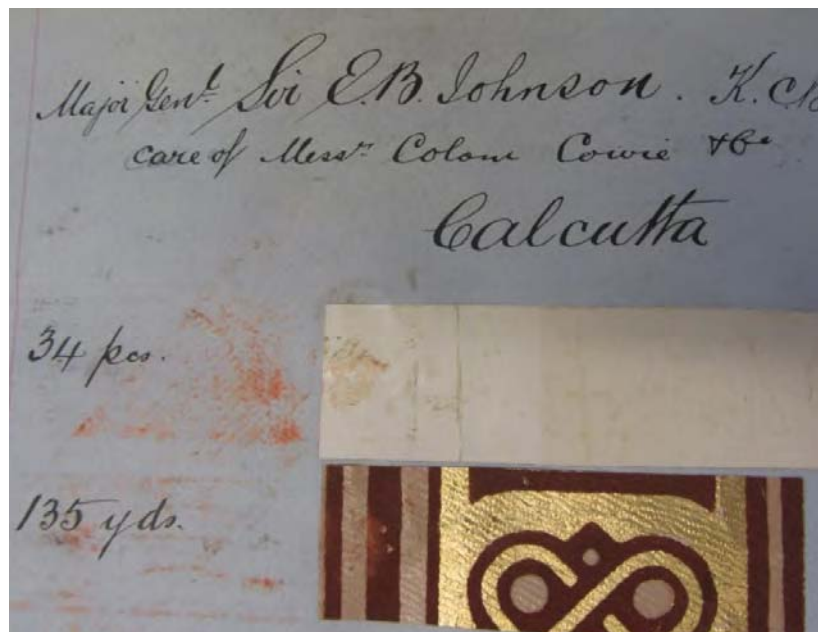 Major Genl. Sir E.B. Johnson. K.C.B
care of Messrs Colam Cowie & Co
Calcutta
34 pcs.
135 yds.